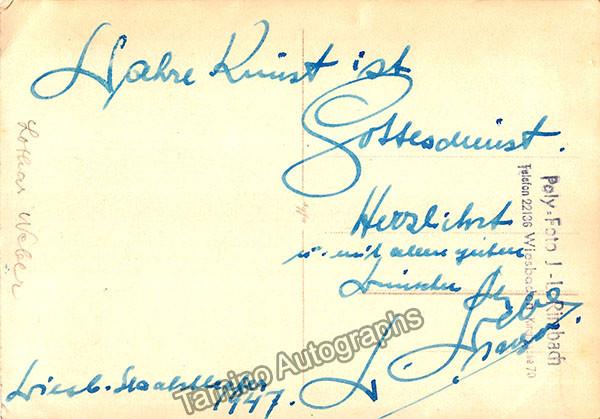 Wahre Kunst ist
Gottesdienst.
Herzlichst
u. mit allen guten
Wünschen
L. Weber
Wiesb. Staatstheater
1947.
Lothar Weber
Poly-Foto J.
Telefon 22136 Wiesbaden
Tamino Autographs